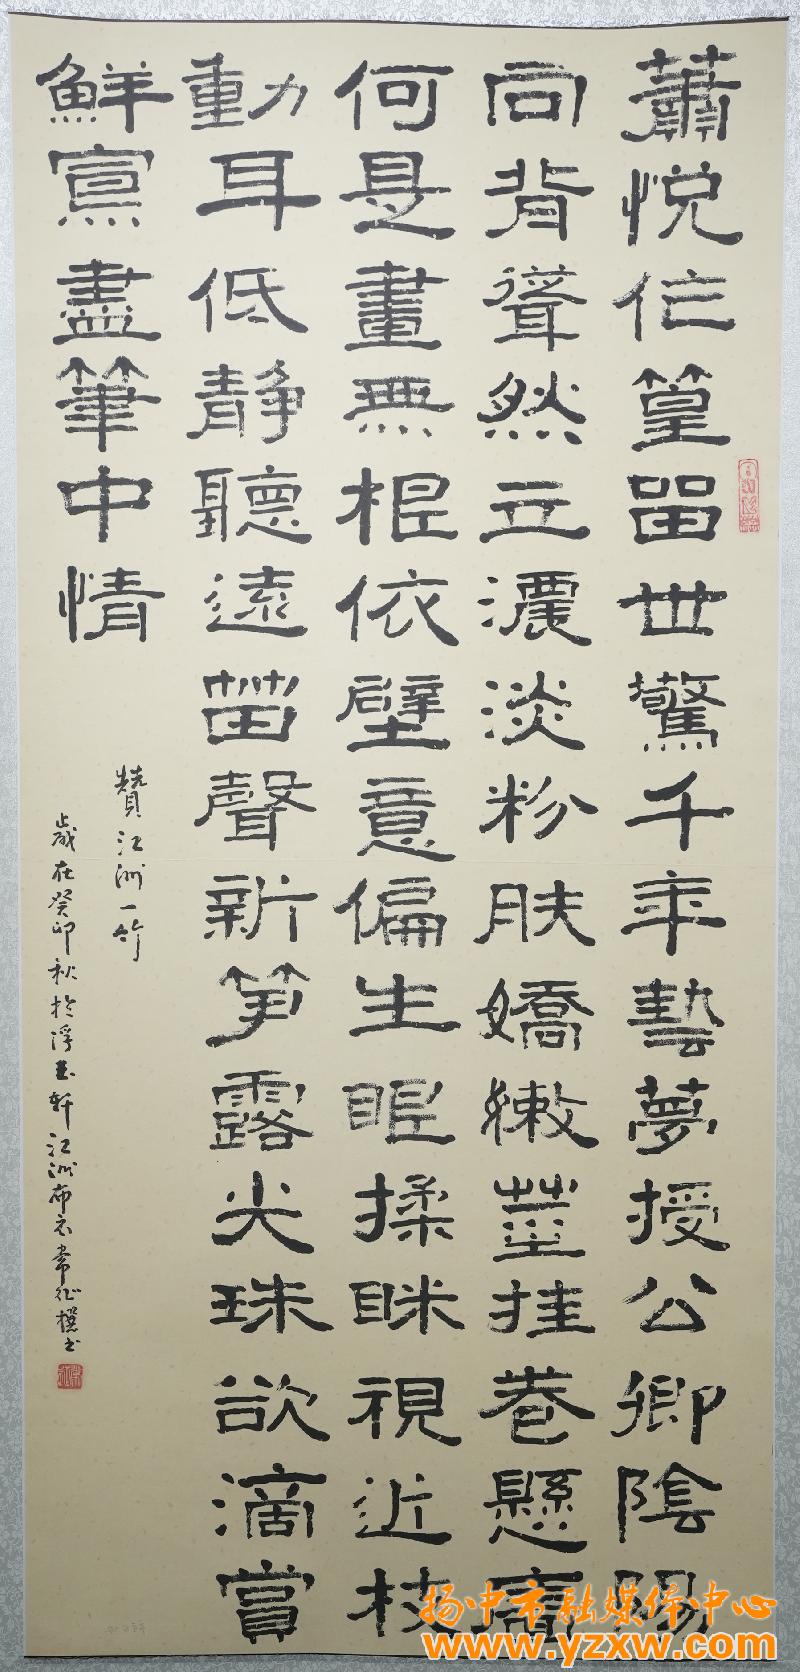 蕭悦作篁留世驚千年藝夢授公卿陰陽
向背聳然立濃淡粉肤嬌嫩莖挂卷懸
何是畫無根依壁意偏生眼揉眯視近枝
動耳低靜聽遠聲新笋露尖珠欲滴賞
鮮寫盡筆中情
贊江洲一竹
歲在癸卯秋於浮玉軒江洲布衣常征撰书
扬中市融媒体中心
www.yzxw.com